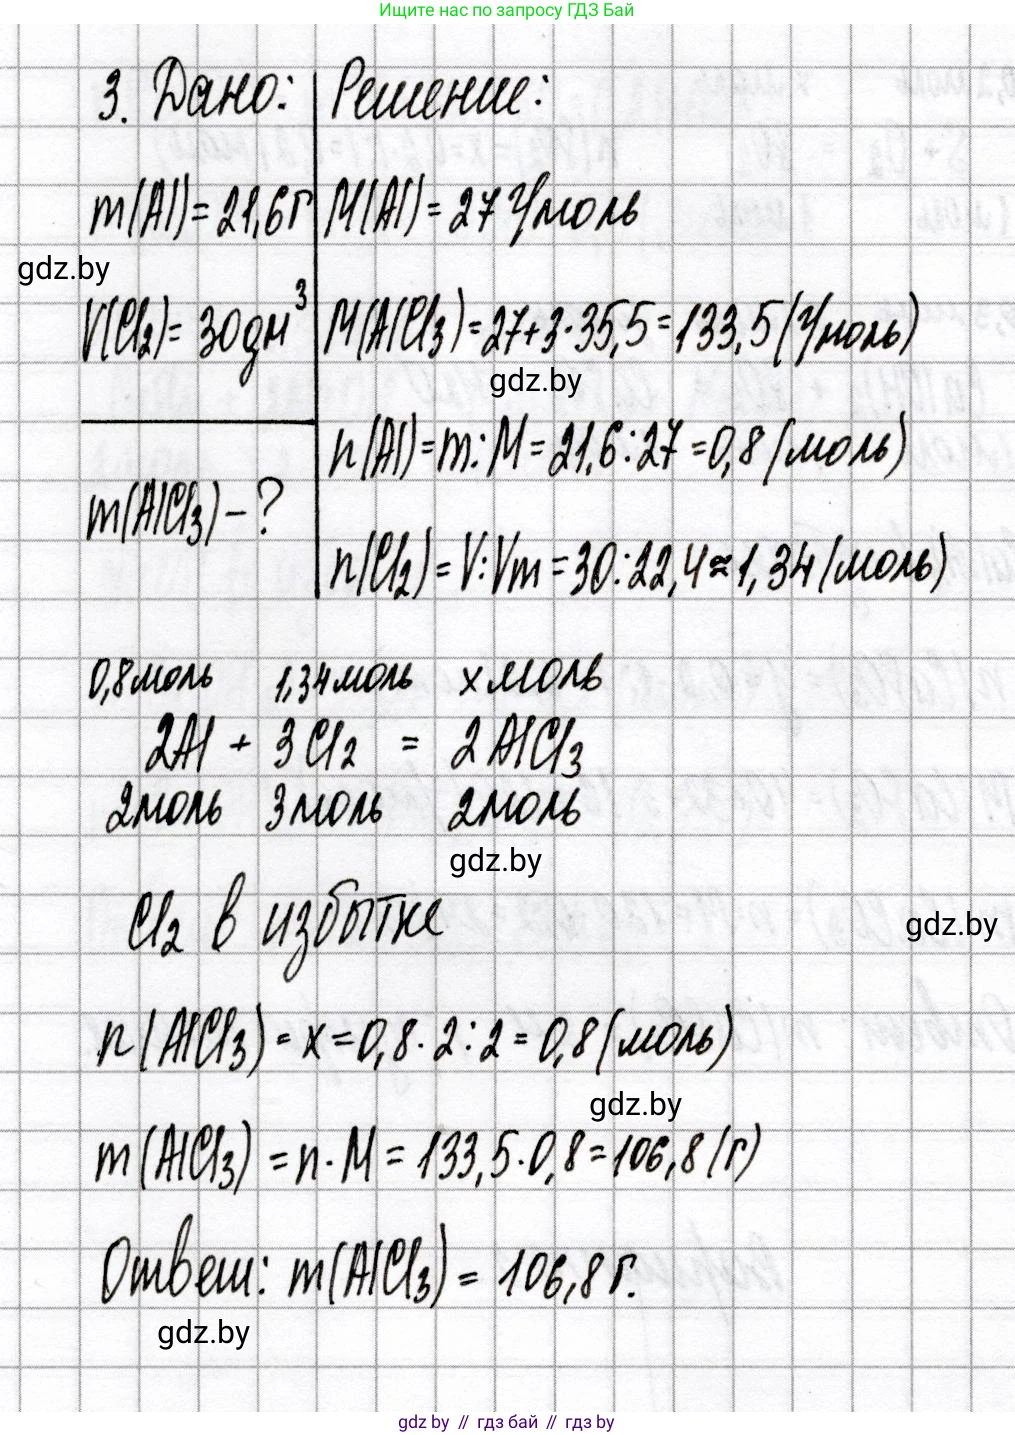 Ищите нас по запросу ГДЗ Бай
3. Дано: Решение:
m(Al)=21,6г M(Al)=27 г/моль
gdz.by
V(Cl₂)=30дм³ M(AlCl₃)=27+3·35,5=133,5(г/моль)
gdz.by
n(Al)=m:M=21,6:27=0,8(моль)
m(AlCl₃)-?
n(Cl₂)=V:Vm=30:22,4≈1,34(моль)
0,8моль 1,34моль x моль
2Al + 3Cl₂ = 2AlCl₃
2моль 3моль 2моль
gdz.by
Cl₂ в избытке
gdz.by
n(AlCl₃)=x=0,8·2:2=0,8(моль)
gdz.by
m(AlCl₃)=n·M=133,5·0,8=106,8(г)
Ответ: m(AlCl₃)=106,8г.
gdz.by
gdz by // гдз бай // gdz by